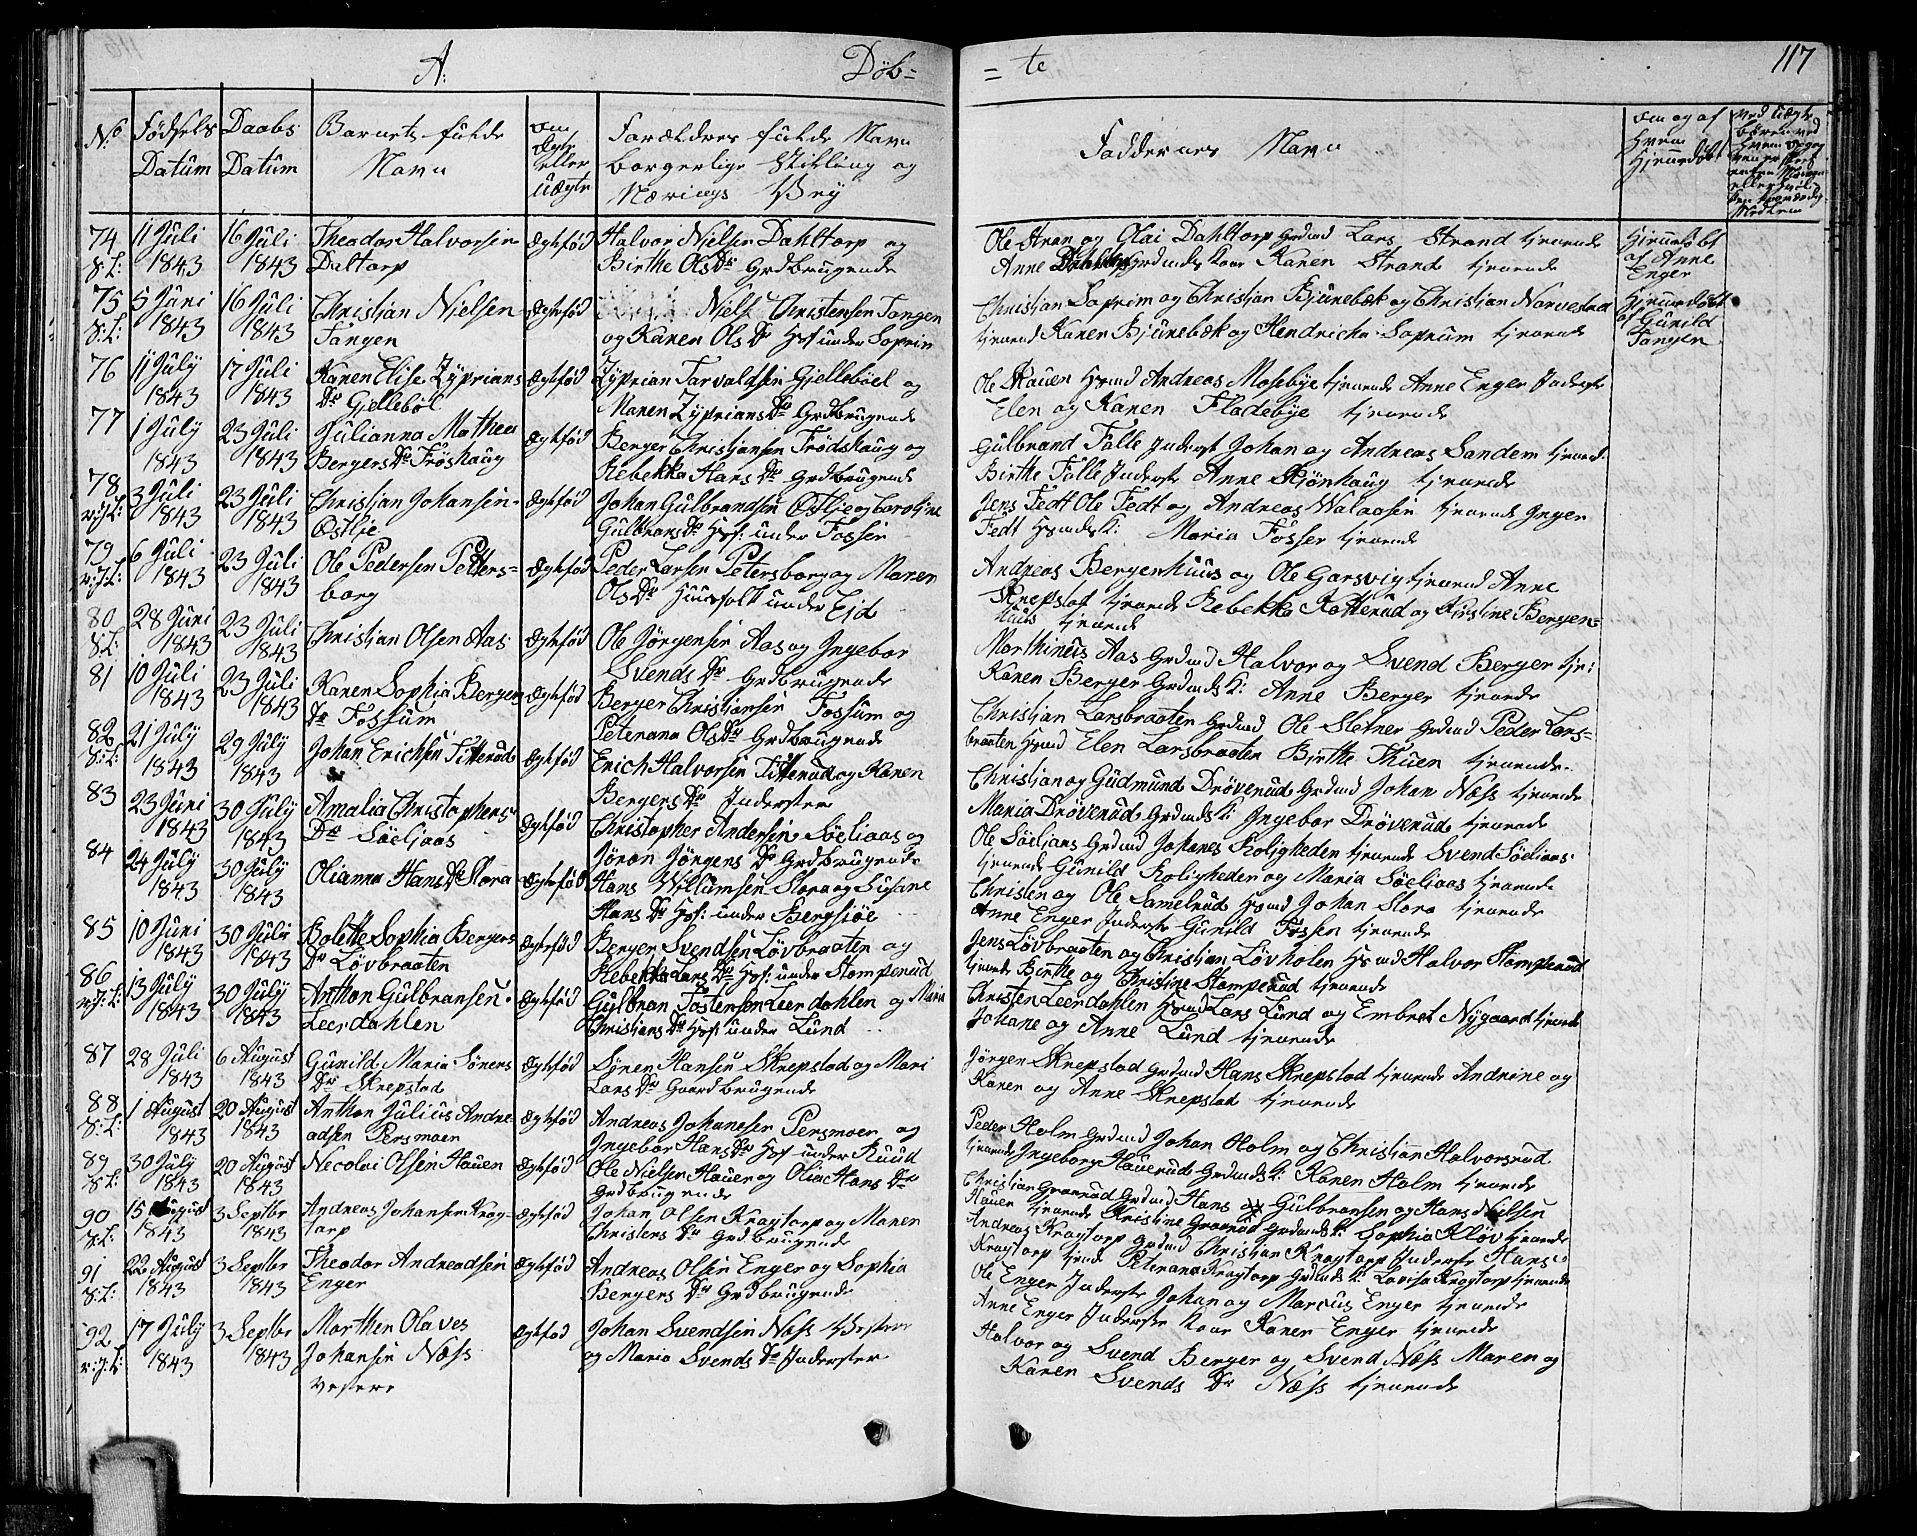 A: Döb=
= te 117
No Födsels Datum Daabs Datum Barnets fulde Navn om Ægte eller Uægte Forældres fulde Navn borgerlige Stilling og Nærings Vey
Faddernes Navn om og af hvem hjemmedöbt
74 11 Juli 1843 16 Juli 1843 Theodor Halvorsen Daltorp Ægtefød Halvor Nielsen Dahltorp og Birthe Ols Dr Grdbrugende
Ole Stran og Olai Dahltorp Grdmd Lars Strand tjenende
Anne Dahltorp Grdmds Kone Karen Strand tjenende
Hjemmedöbt af Anne Enger
75 5 Juni 1843 16 Juli 1843 Christjan Nielsen Tangen Ægtefød Niels Christensen Tangen og Karen Ols Dr Hsf under Soprim
Christjan Soprim og Christjan Bjünebæk og Christjan Narvestad
tjenend Karen Bjünebæk og Hendricka Soprum tjenende
Hjemmedöbt af Gunild Tangen
76 11 July 1843 17 Juli 1843 Karen Elise Zyprians Dr Gjellebøl Ægtefød Zyprian Tarvaldsen Gjellebøel og Maren Zyprians Dr Grdbrugende
Ole Skauen Hsmd Andreas Mosebye tjenende Anne Enger Inderst
Elen og Karen Fladebye tjenende
77 1 July 1843 23 Juli 1843 Julianna Mathea Bergers Dr Fröshaug Ægtefød Berger Christjansen Frödshaug og Rebekka Hans Dr Grdbrugende
Gulbrand Falle Inderst Johan og Andreas Sandem tjenend
Birthe Falle Inderste Anne Kjönhaug tjenende
78 3 Juli 1843 23 Juli 1843 Christjan Johansen Östlje Ægtefød Johan Gulbrandsen Östlje og Caroline Gulbrans Dr Hsf: under Fosser
Jens Tedt Ole Tedt og Andreas Walaasen tjenende Inger
Tedt Hsmds K: Maria Fosser tjenende
79 6 Juli 1843 23 Juli 1843 Ole Pedersen Petters-borg Ægtefød Peder Larsen Petersborg og Maren Ols Dr Huusfolk under Eid
Andreas Bergenhuus og Ole Garsvig tjenend Anne
Skrepstad tjenende Rebekka Kotterud og Kirstine Bergen=
huus tjenende
80 S:L: 28 Juni 1843 23 Juli 1843 Christjan Olsen Aas Ægtefød Ole Jörgensen Aas og Ingebor Svends Dr Grdbrugende
Marthinus Aas Grdmd Halvor og Svend Berger tje:
Karen Berger Grdmds K: Anne Berger tjenende
81 10 Juli 1843 23 Juli 1843 Karen Sophia Bergers Dr Fossum Ægtefød Berger Christjansen Fossum og Peternana Ols Dr Grdbrugende
Christjan Larsbraaten Grdmd Ole Sletner Grdmd Peder Lars=
braaten Hsmd Elen Larsbraaten Birthe Thuen tjenende
82 S:L: 21 July 1843 29 July 1843 Johan Erichsen Titterud Ægtefød Erich Halvorsen Titterud og Karen Bergers Dr Inderster
Christjan og Gudmund Drövenud Grdmd Johan Næss tjenende
Maria Drövenud Grdmds K: Ingebor Drövenud tjenende
83 23 Juni 1843 30 July 1843 Amalia Christophers Dr Söeljaas Ægtefød Christopher Andersen Söeliaas og Jöran Jörgens Dr Grdbrugende
Ole Söeljaas Grdmd Johanes Roligheden tjenende Svend Söeliaas
tjenende Gunild Roligheden og Maria Söeliaas tjenende
84 24 July 1843 30 July 1843 Olianna Hans Dr Slora Ægtefød Hans Willumsen Slora og Susane Hans Dr Hsf: under Bergsiöe
Christen og Ole Samelrud Hsmd Johan Slora tjenende
Anne Enger Inderste Gunild Fossen tjenende
85 10 Juni 1843 30 July 1843 Bolette Sophia Bergers Dr Lövbraaten Ægtefød Berger Svendsen Lövbraaten og Rebekka Lars Dr Hsf: under Stomperud
Jens Lövbraaten og Christjan Lövholen Hsmd Halvor Stomperud
tjenende Birthe og Christine Stomperud tjenende
86 13 July 1843 30 July 1843 Anthon Gulbransen Leerdahlen Ægtefød Gulbran Tostensen Leerdahlen og Maria Christjans Dr Hsf: under Lund
Christen Leerdahlen Hsmd Lars Lund og Embret Nygaard tjenende
Johane og Anne Lund tjenende
87 28 Juli 1843 6 August 1843 Gunild Maria Sörens Dr Skrepstad Ægtefød Sören Hansen Skrepstad og Mari Lars Dr Gaardbrugende
Jörgen Skrepstad Grdmd Hans Skrepstad tjenende Andrine og
Karen og Anne Skrepstad tjenende
88 S:L: 1 August 1843 20 August 1843 Anthon Julius Andreadsen Persmoen Ægtefød Andreas Johanesen Persmoen og Ingebor Hans Dr Hsf under Ruud
Peder Holm Grdmd Johan Holm og Christjan Halvorsrud
tjenende Ingeborg Haverud Grdmds K: Karen Holm tjenende
89 S:L: 30 July 1843 20 August 1843 Necolai Olsen Hauer Ægtefød Ole Nielsen Hauer og Olia Hans Dr Grdbrugende
Christian Graarud Grdmd Hans Gulbransen og Hans Nielsen
Hauer tjenende Kristine Graarud Grdmds K: Sophia Klöv tjenende
90 S:L: 15 August 1843 3 Septbr 1843 Andreas Johansen Kragtorp Ægtefød Johan Olsen Kragtorp og Maren Christens Dr Grdbrugende
Andreas Kragtorp Grdmd Christjan Kragtorp Inderste Hans
Kragtorp tjend Peternana Kragtorp Grdmds K: Lovisa Kragtorp tjenende
91 S:L: 22 August 1843 3 Septbr 1843 Theodor Andreadsen Enger Ægtefød Andreas Olsen Enger og Sophia Bergers Dr Grdbrugende
Ole Enger Inderste Johan og Marcus Enger tjenende
Anne Enger Inderste Kone Karen Enger tjenende
92 17 July 1843 3 Septbr 1843 Marthen Olaves Johansen Næss vestere Ægtefød Johan Svendsen Næss Vestere og Maria Svends Dr Inderster
Halvor og Svend Berger og Svend Næss Maren og
Karen Svends Dr Næss tjenende